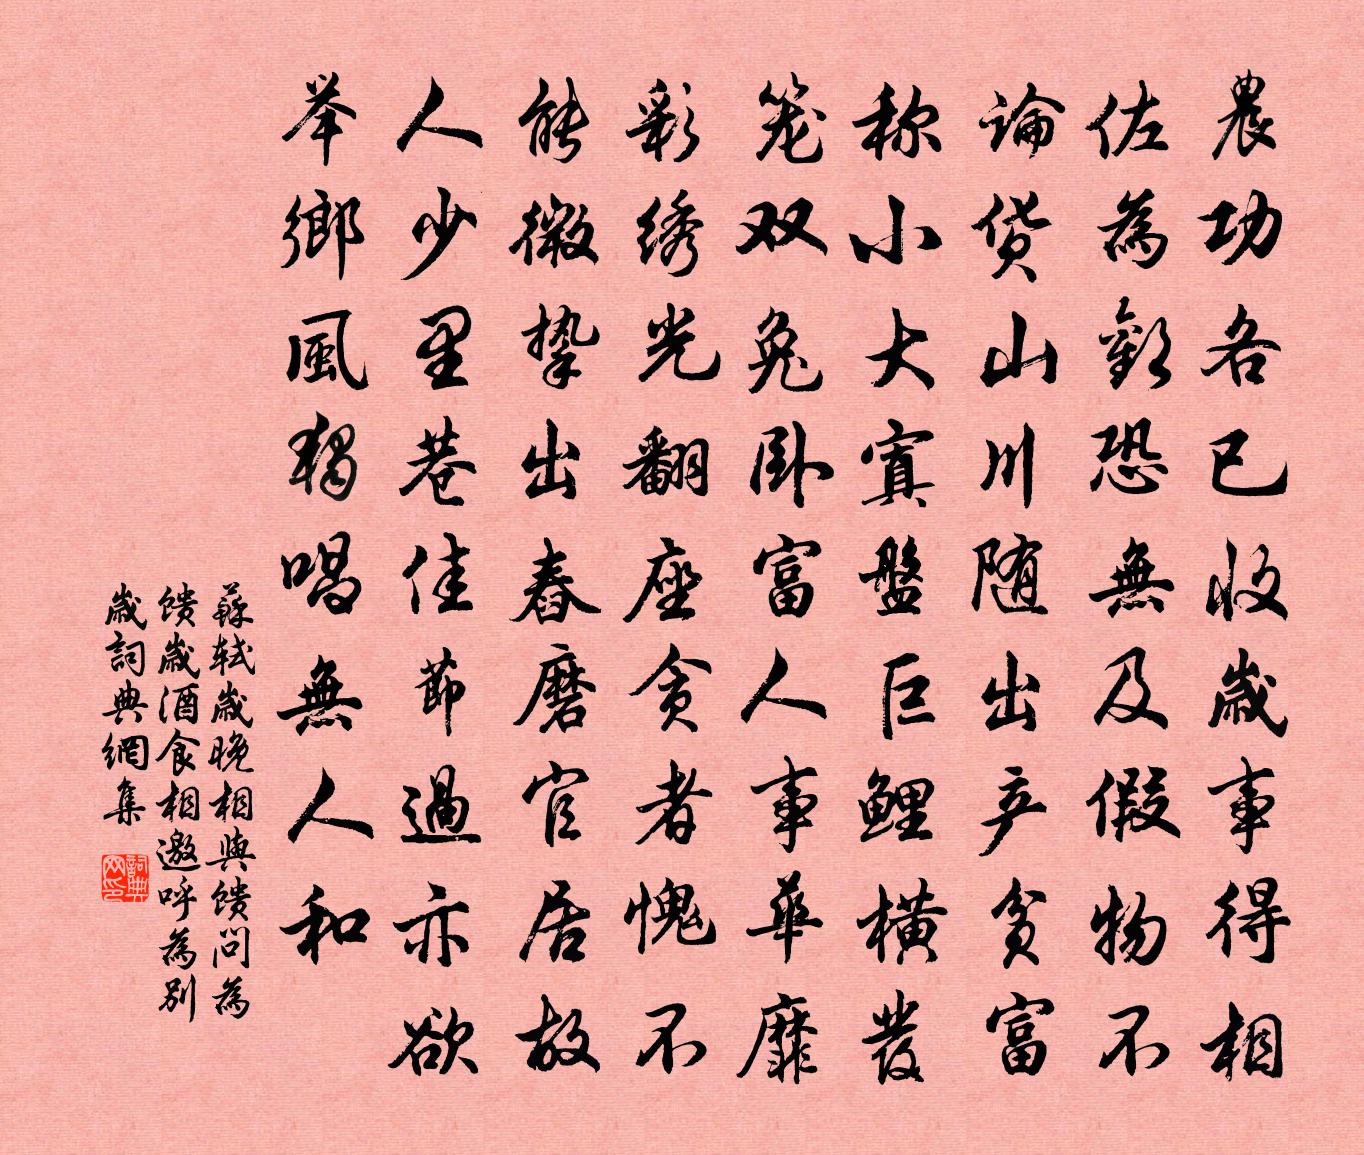 農功各已收歲事得相
佐為歡恐無及假物不
論货山川随出产贫富
称小大寘盤巨鲤橫發
笼双兔卧富人事華靡
彩绣光翻座贫者愧不
能微挚出舂磨官居故
人少里巷佳節過亦欲
举鄉風獨唱無人和
蘇轼歲晚相與馈问為
馈歲酒食相邀呼為别
歲詞典網集
詞典网印